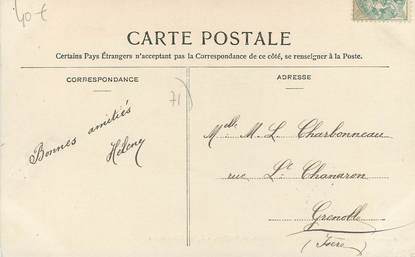 40 €
CARTE POSTALE
Certains Pays Étrangers n'acceptant pas la Correspondance de ce côté, se renseigner à la Poste.
CORRESPONDANCE
ADRESSE
71
Bonnes amitiés
Heleny
Melle M. L. Charbonneau
rue Lt Chanaron
Grenoble
(Isère)